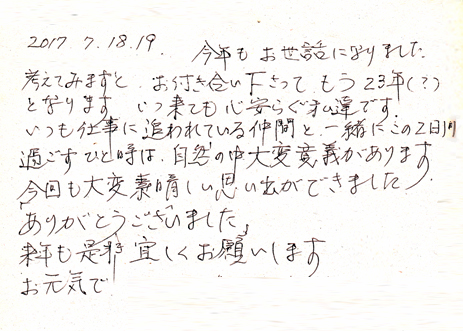 2017. 7. 18. 19.
今年もお世話になりました
考えてみますと お付き合い下さって もう23年(?)
となります いつ来ても心安らぐ私達です.
いつも仕事に追われている仲間と一緒にこの2日間
過ごすひと時は、自然の中大変意義があります
今回も大変素晴しい思い出ができました
ありがとうございました,
来年も是非宜しくお願いします
お元気で